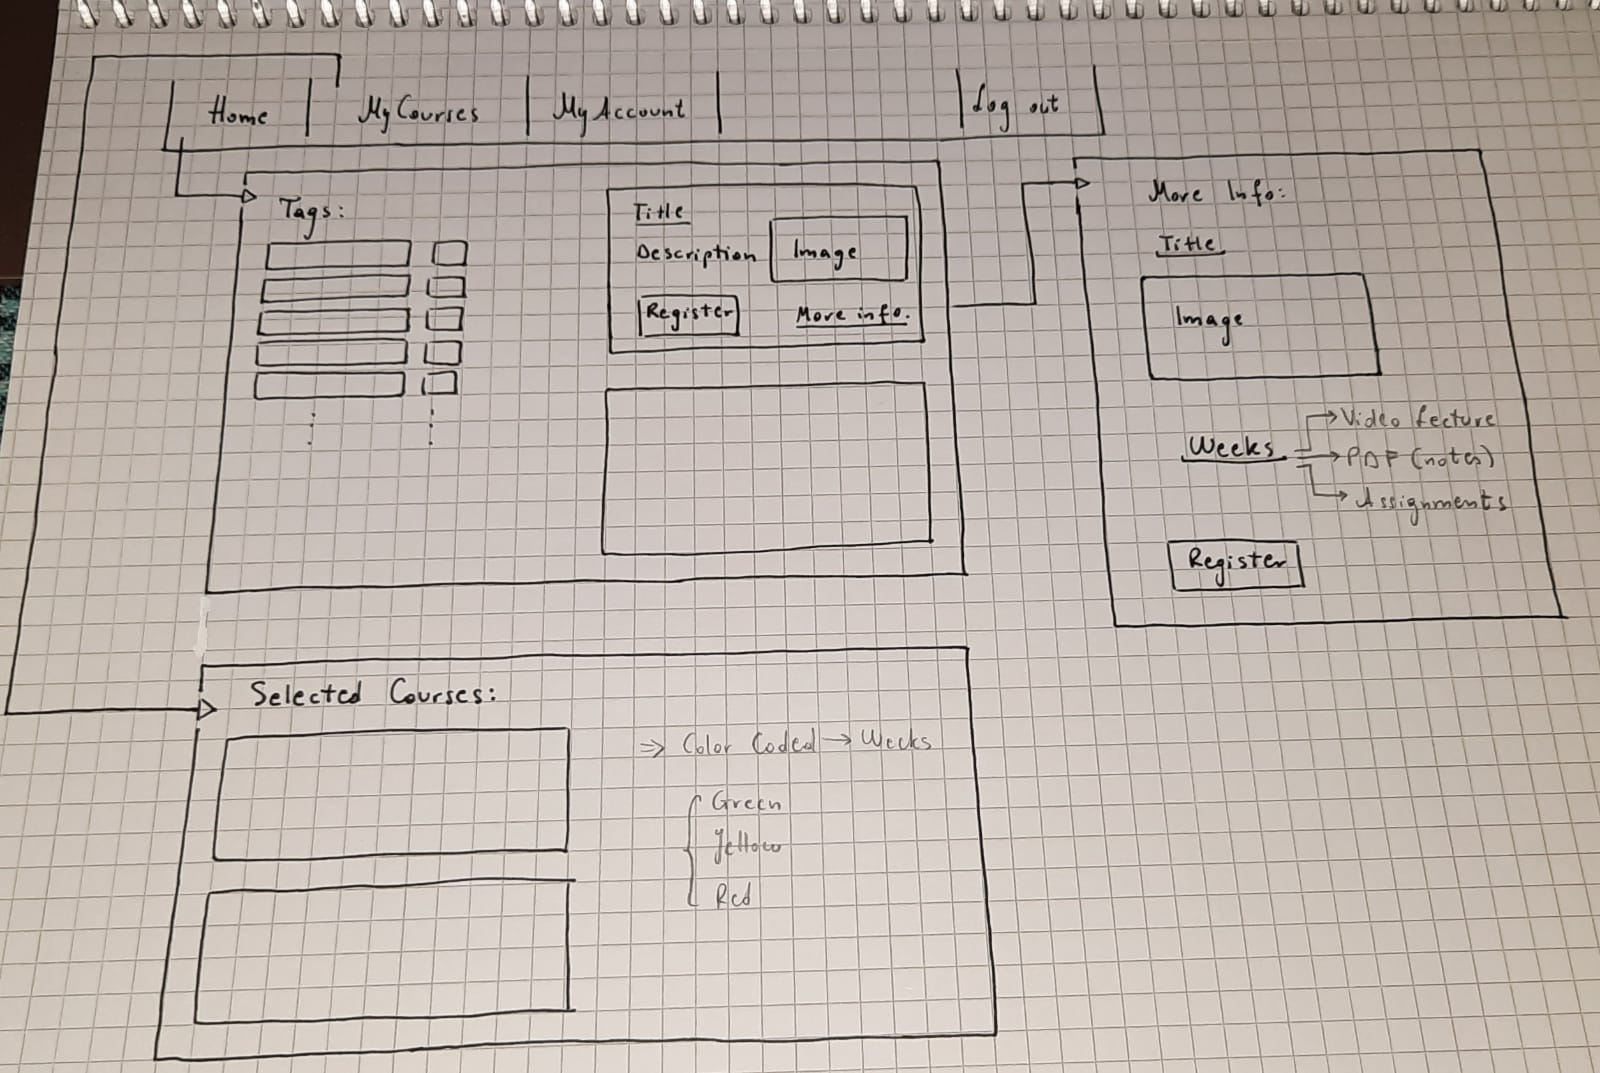 Home
My Courses
My Account
Log out
Tags:
Title
Description
Image
Register
More info.
More Info:
Title
Image
Weeks
Video Lecture
PDF (notes)
Assignments
Register
Selected Courses:
⇒ Color Coded → Weeks
Green
Yellow
Red